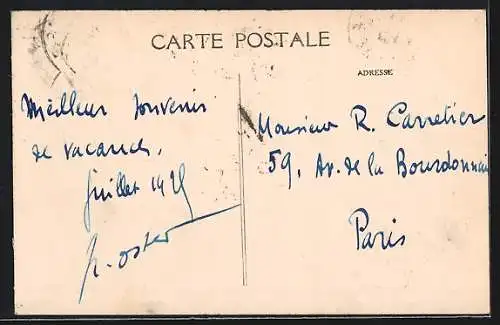 CARTE POSTALE
ADRESSE
Meilleur souvenir
de vacances.
juillet 1925
Monsieur R. Carretier
59, Av. de la Bourdonnais
Paris